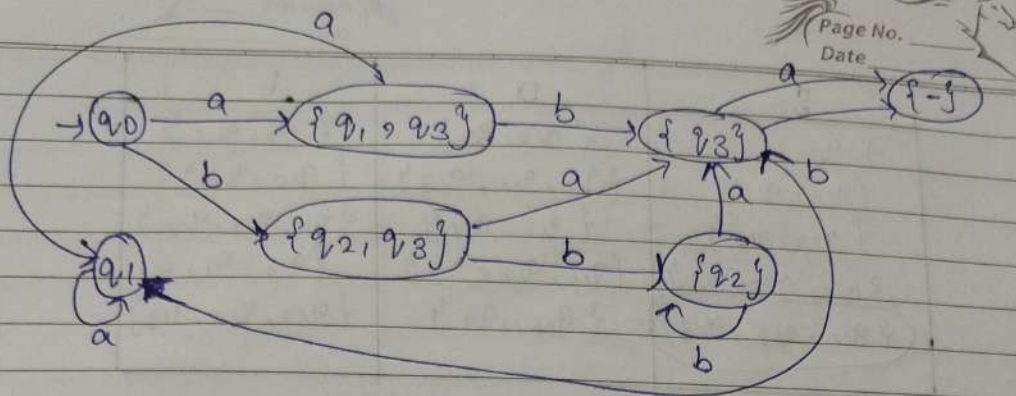 Page No.
Date
a
a
{-}
→ q0
a
{q1, q3}
b
{q3}
b
a
b
a
{q2, q3}
b
{q2}
q1
a
b